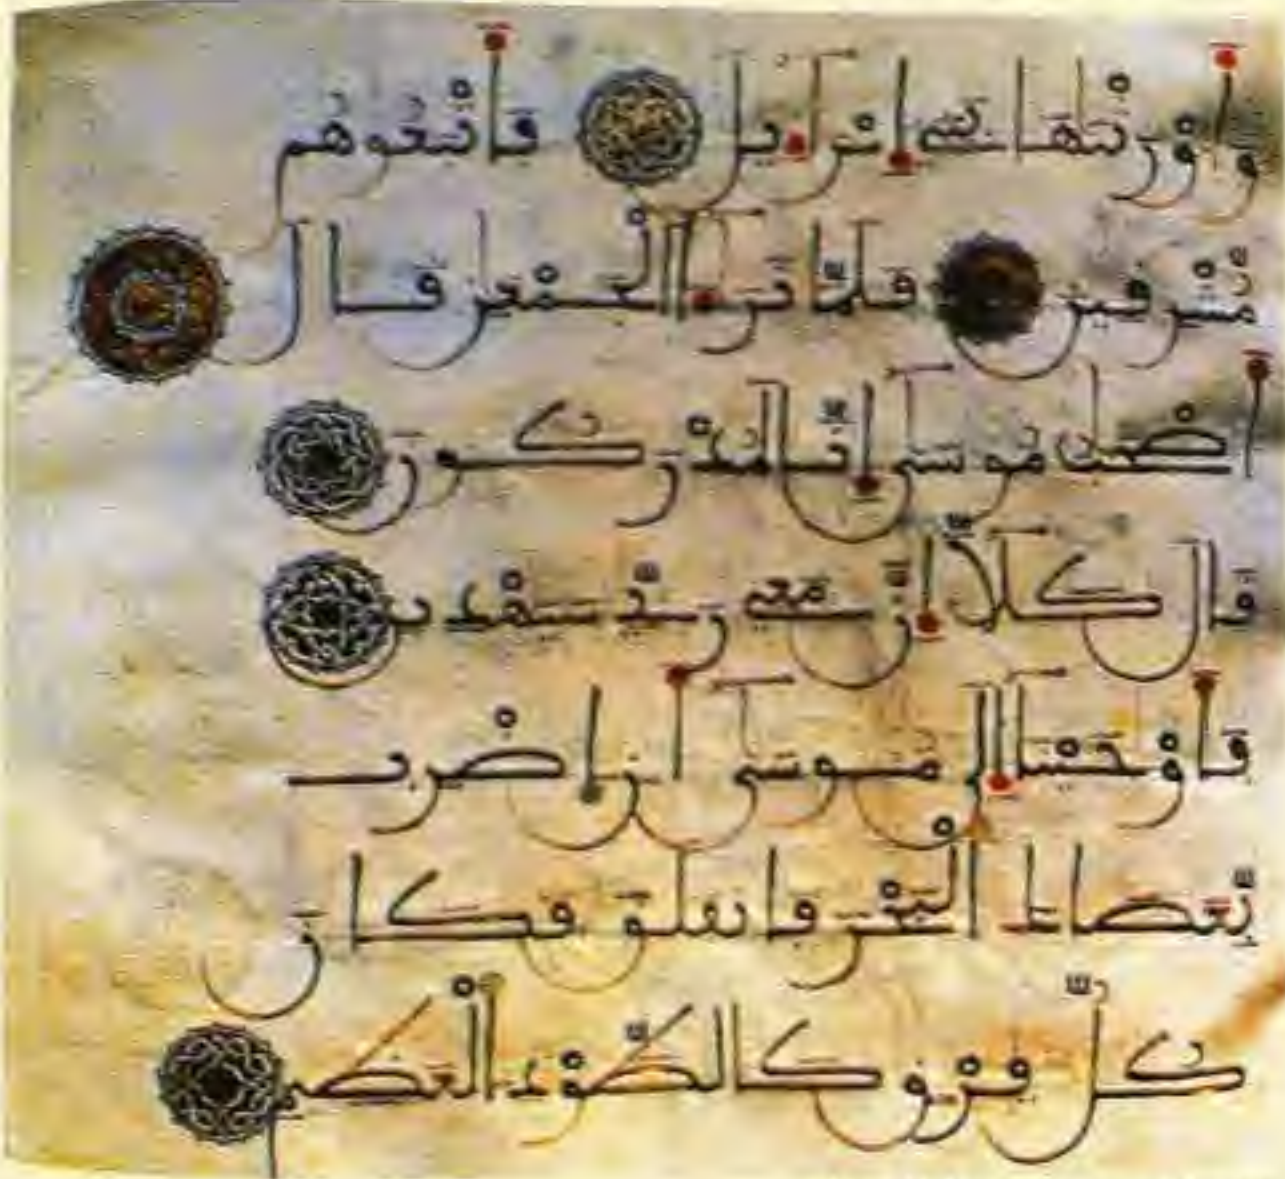 وَأَوْرَثْنَٰهَا بَنِي إِسْرَآءِيلَ فَأَتْبَعُوهُم
مُّشْرِقِينَ فَلَمَّا تَرَٰٓءَا الْجَمْعَٰنِ قَالَ
أَصْحَٰبُ مُوسَىٰٓ إِنَّا لَمُدْرَكُونَ
قَالَ كَلَّآ إِنَّ مَعِي رَبِّي سَيَهْدِينِ
فَأَوْحَيْنَآ إِلَىٰ مُوسَىٰٓ أَنِ اضْرِب
بِّعَصَاكَ الْبَحْرَ فَانفَلَقَ فَكَانَ
كُلُّ فِرْقٍ كَالطَّوْدِ الْعَظِيمِ